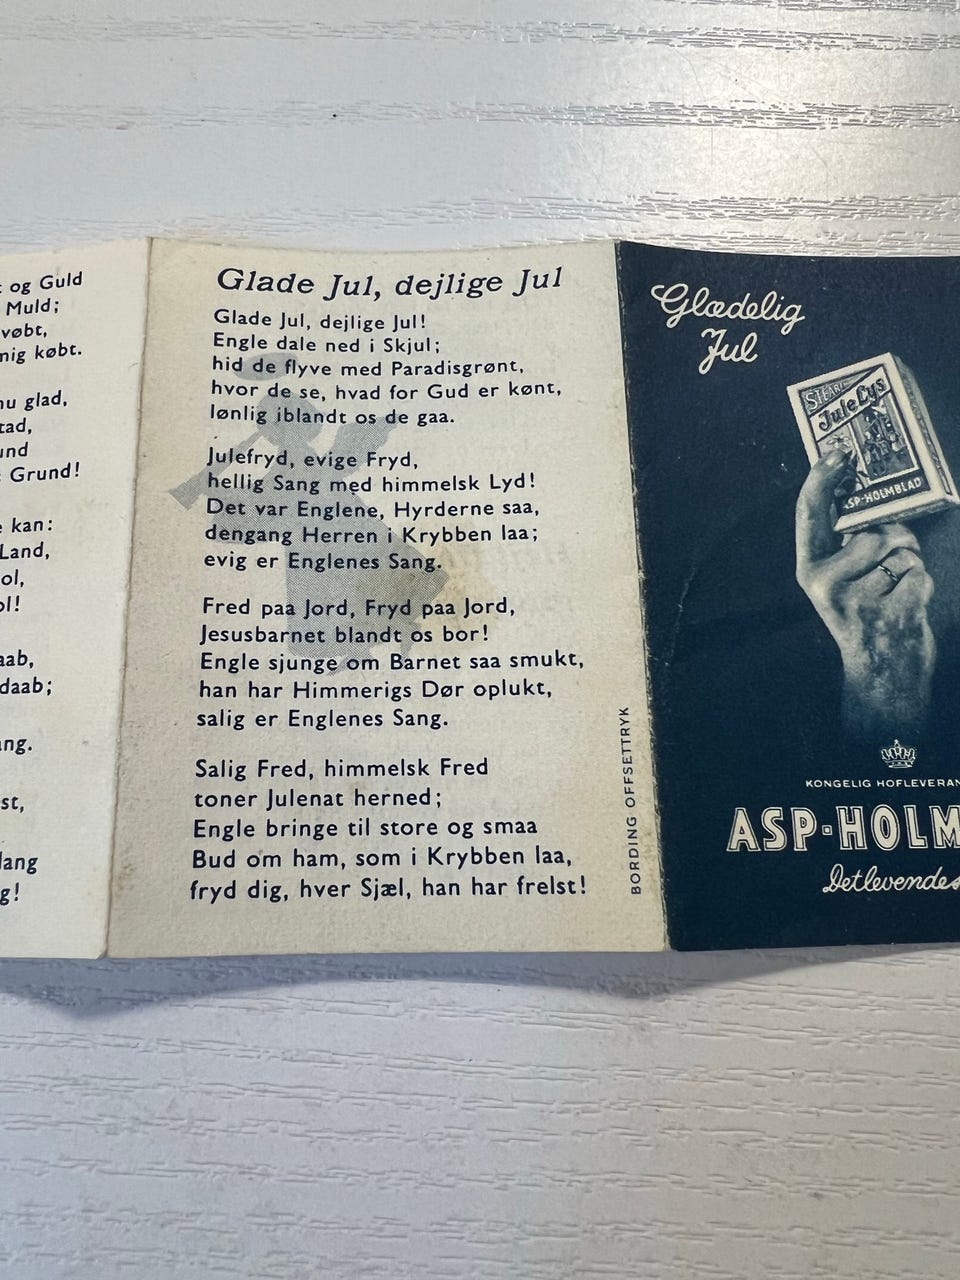 og Guld
Muld;
mig købt.
nu glad,
Grund!
kan:
Land,
Glade Jul, dejlige Jul
Glade Jul, dejlige Jul!
Engle dale ned i Skjul;
hid de flyve med Paradisgrønt,
hvor de se, hvad for Gud er kønt,
lønlig iblandt os de gaa.
Julefryd, evige Fryd,
hellig Sang med himmelsk Lyd!
Det var Englene, Hyrderne saa,
dengang Herren i Krybben laa;
evig er Englenes Sang.
Fred paa Jord, Fryd paa Jord,
Jesusbarnet blandt os bor!
Engle sjunge om Barnet saa smukt,
han har Himmerigs Dør oplukt,
salig er Englenes Sang.
Salig Fred, himmelsk Fred
toner Julenat herned;
Engle bringe til store og smaa
Bud om ham, som i Krybben laa,
fryd dig, hver Sjæl, han har frelst!
BORDING OFFSETTRYK
Glædelig
Jul
STEARIN
Jule Lys
ASP-HOLMBLAD
KONGELIG HOFLEVERAN
ASP-HOLM
Det levendes